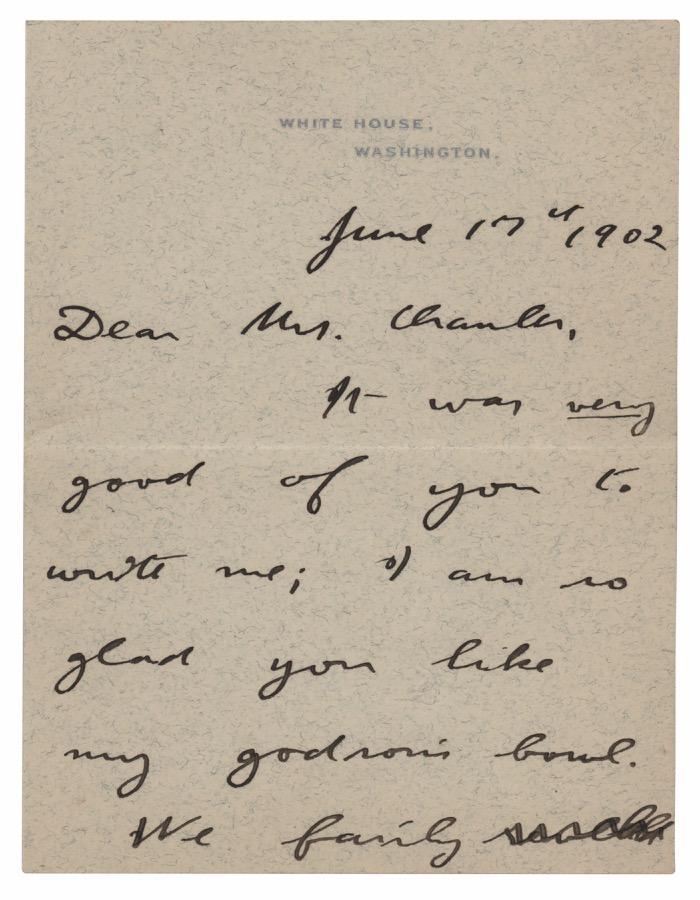 WHITE HOUSE,
WASHINGTON.
June 17th 1902
Dear Mrs. Chanler,
It was very
good of you to
write me; I am so
glad you like
my godson's bowl.
We fairly